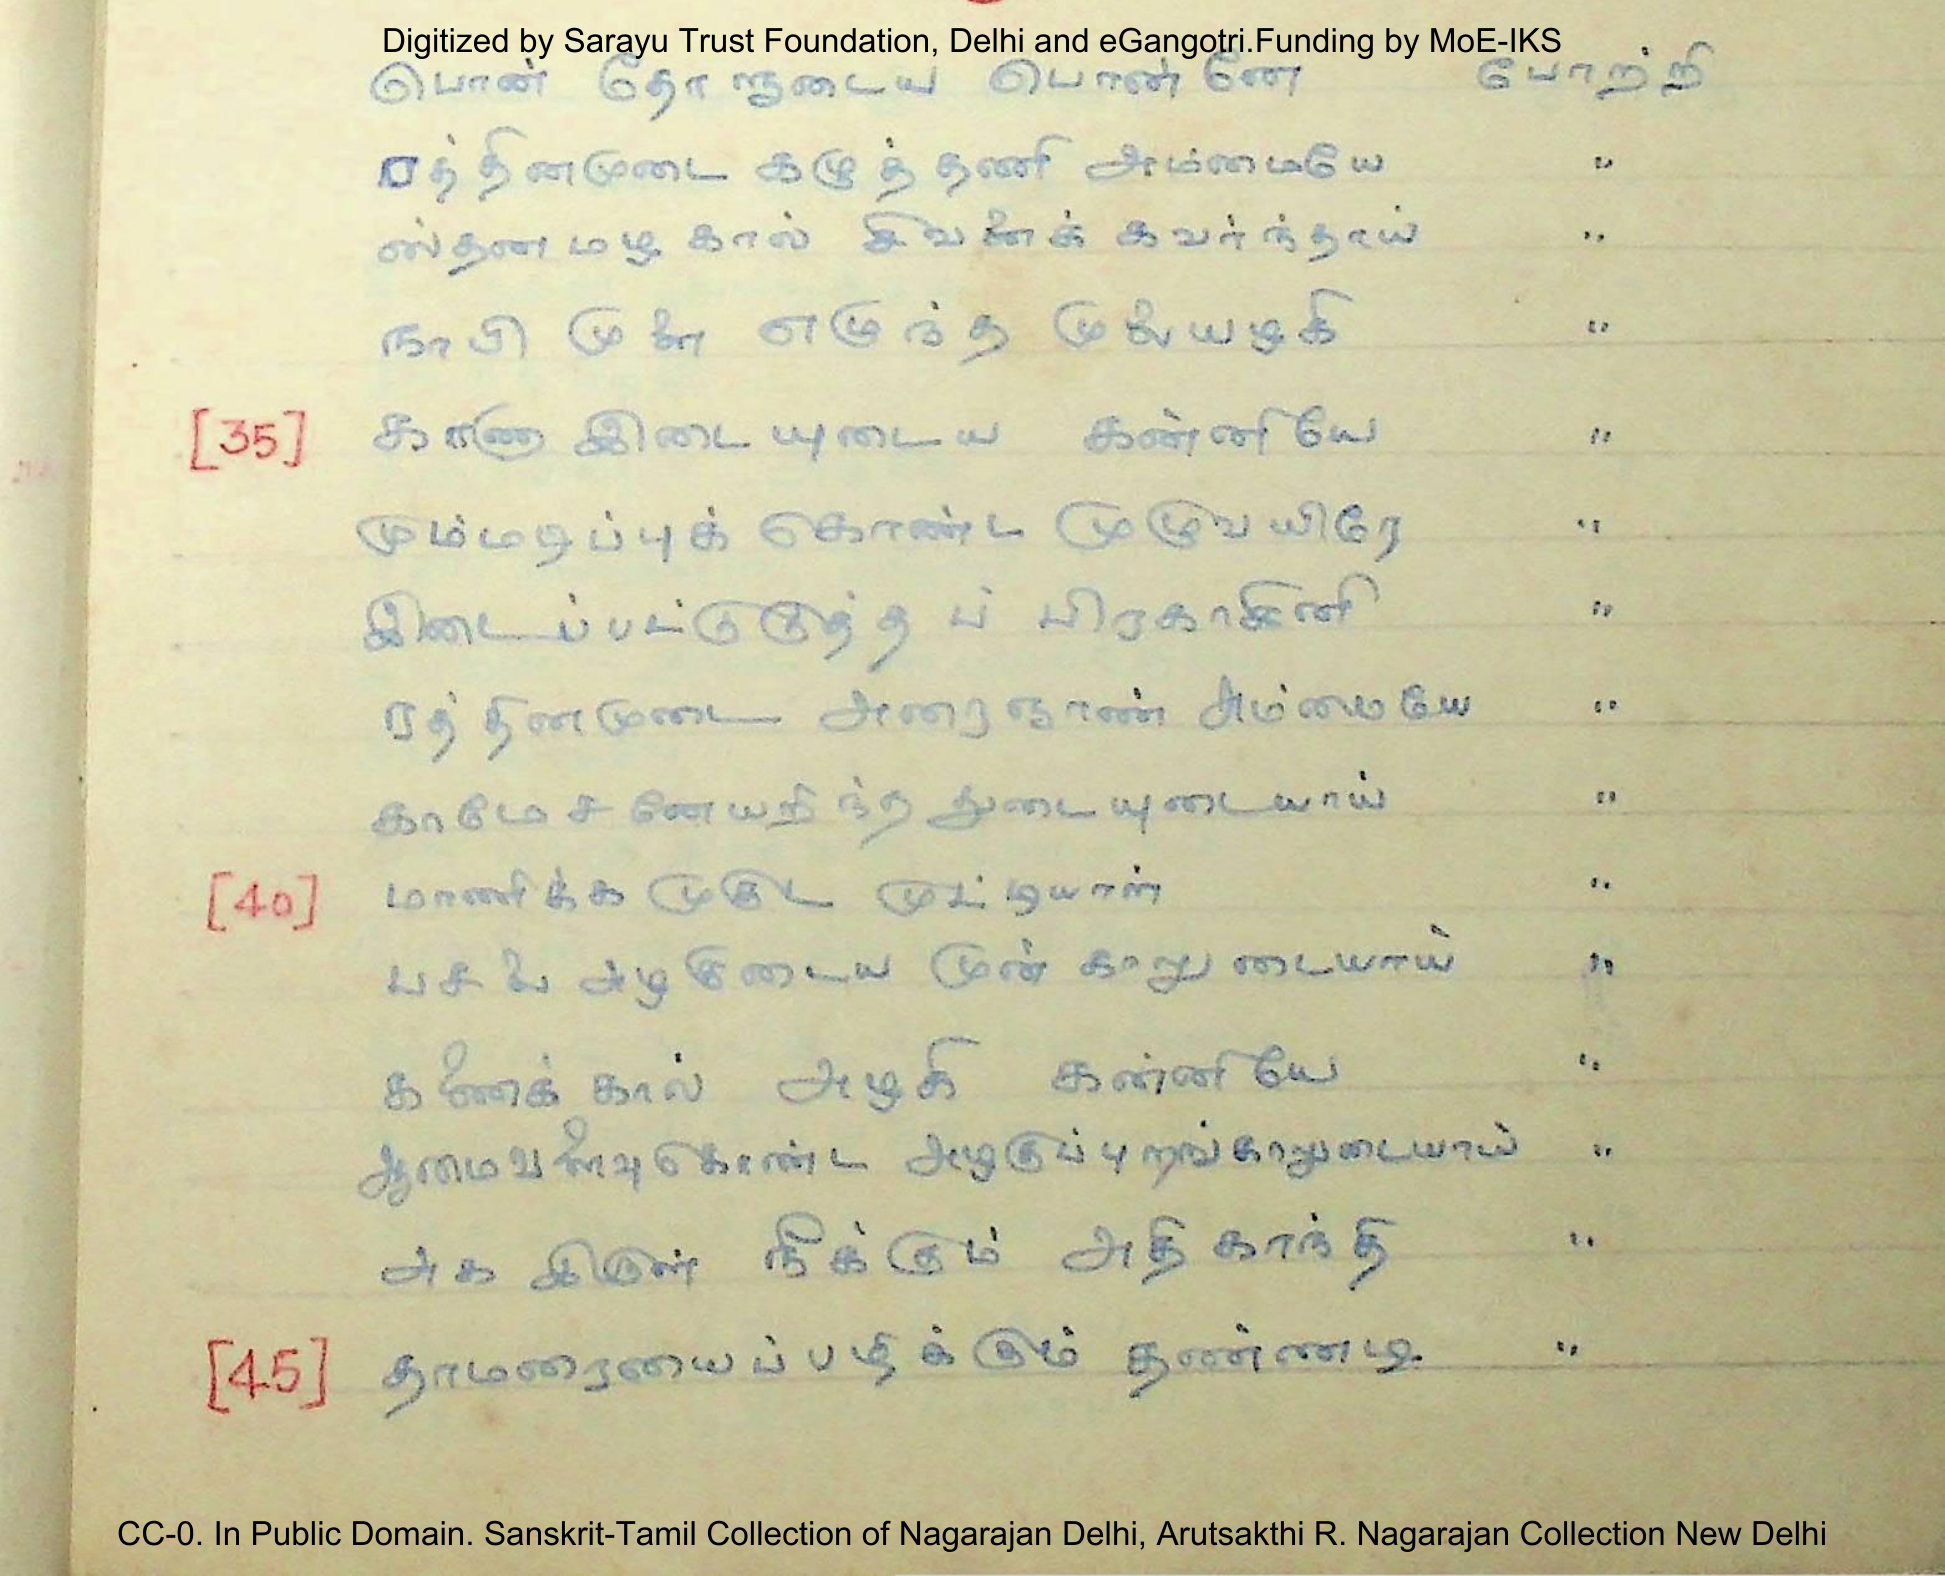 Digitized by Sarayu Trust Foundation, Delhi and eGangotri.Funding by MoE-IKS
பொன் தோளுடைய பொன்னே போற்றி
ரத்தினமுடை கழுத்தணி அம்மையே "
ஸ்தன மழகால் சிவனைக் கவர்ந்தாய் "
நாபி முளை எழுந்த முலையழகி "
[35] காணு இடையுடைய கன்னியே "
மும்மடிப்புக் கொண்ட முழுவயிரே "
இடைப்பட்டுடுத்த ப் பிரகாசினி "
ரத்தினமுடை அரைஞாண் அம்மையே "
காமேசனேயறிந்த துடையுடையாய் "
[40] மாணிக்க முகுட முட்டியாள் "
பசலை அழகுடைய முன் காலுடையாய் "
கணைக்கால் அழகி கன்னியே "
ஆமைவளைவு கொண்ட அழகுப்புறங்காலுடையாய் "
அக இருள் நீக்கும் அதி காந்தி "
[45] தாமரையைப்பழிக்கும் தண்ணடி "
CC-0. In Public Domain. Sanskrit-Tamil Collection of Nagarajan Delhi, Arutsakthi R. Nagarajan Collection New Delhi